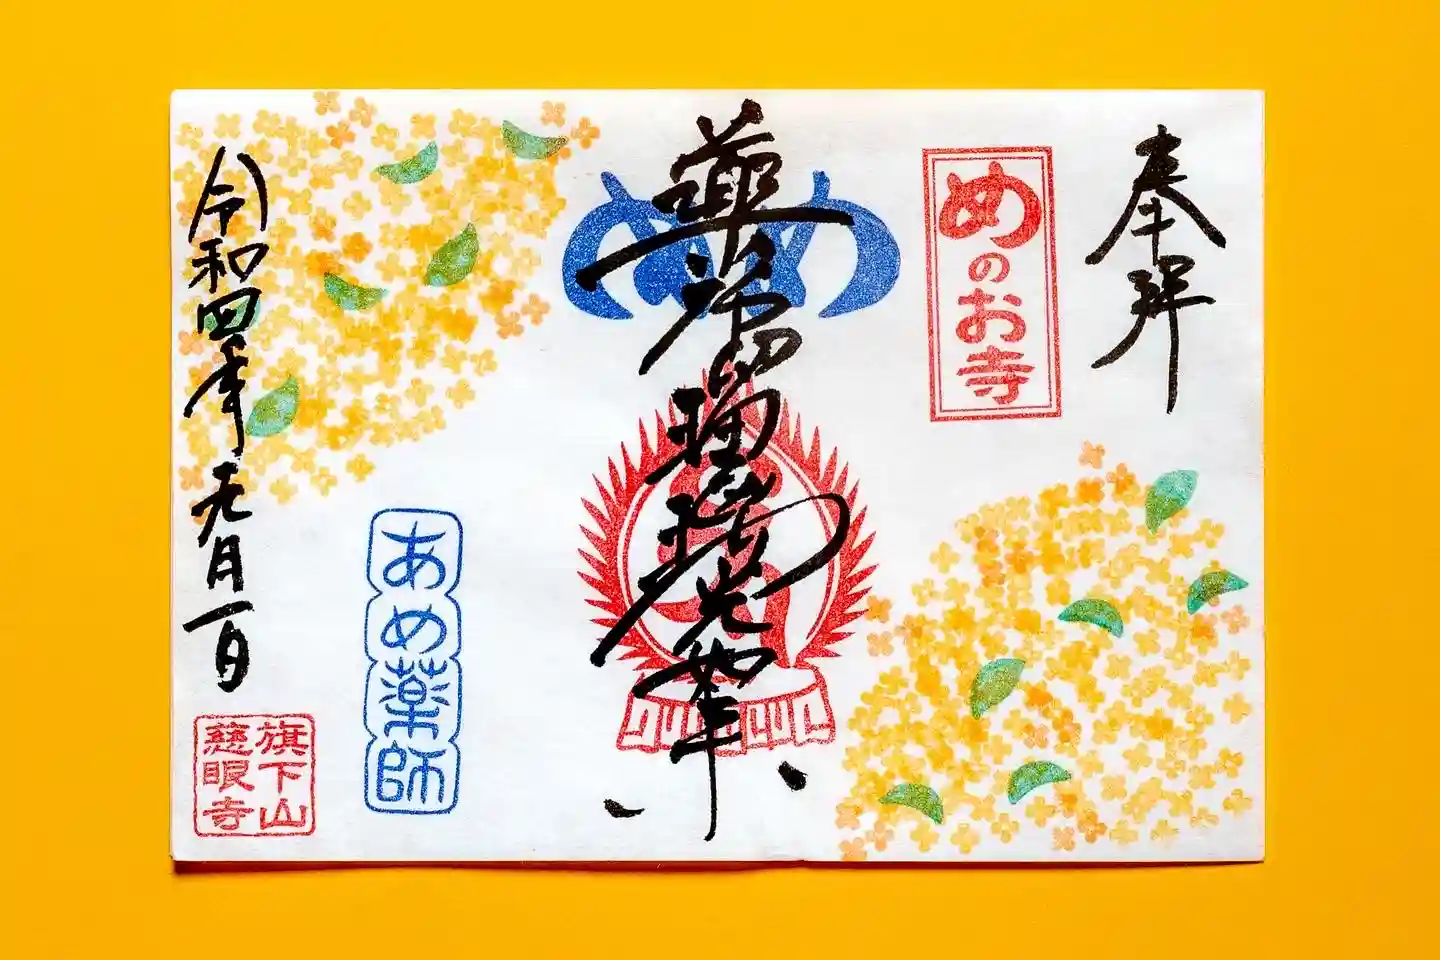 奉拝
めのお寺
め
薬師瑠璃光如来
あめ薬師
令和四年元月一日
旗下山
慈眼寺